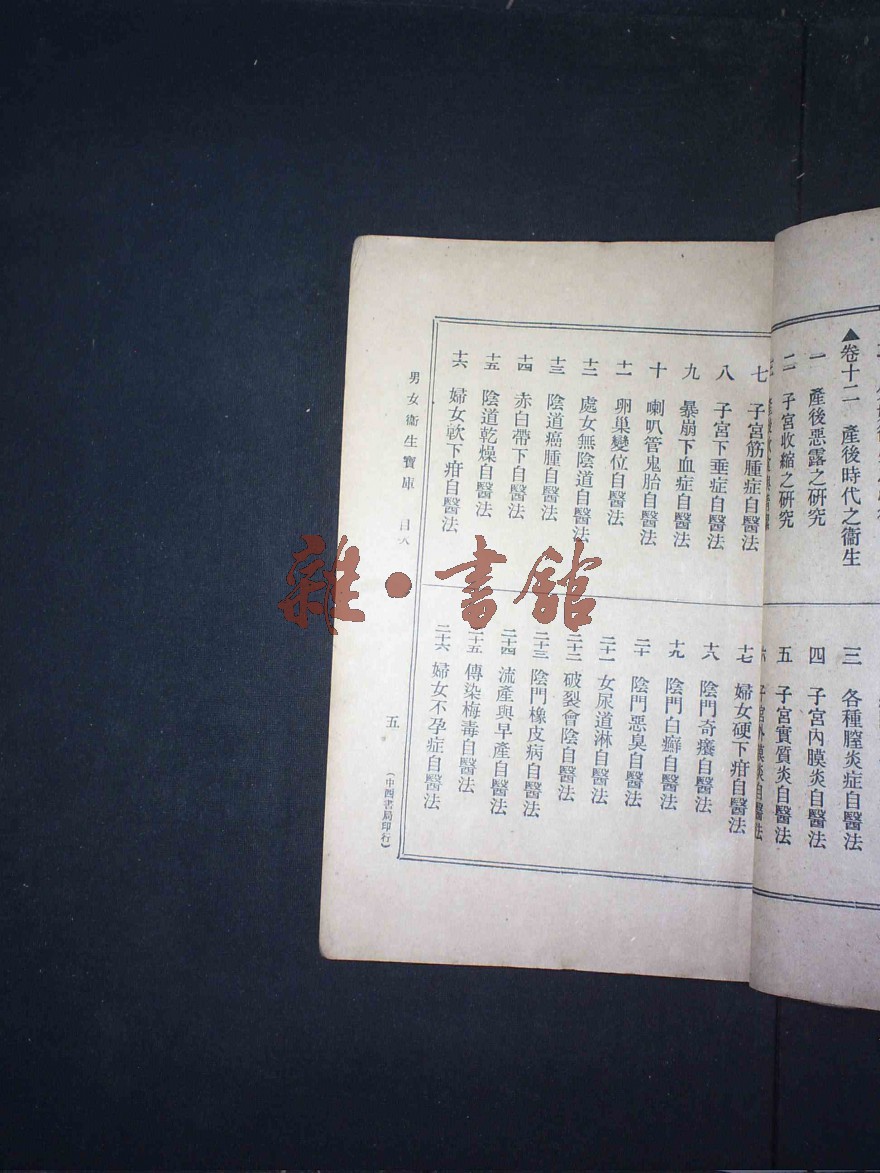 ▲卷十二 產後時代之衞生
一 產後惡露之研究
二 子宮收縮之研究
三 各種膣炎症自醫法
四 子宮內膜炎自醫法
五 子宮實質炎自醫法
六 子宮外膜炎自醫法
七 子宮筋腫症自醫法
八 子宮下垂症自醫法
九 暴崩下血症自醫法
十 喇叭管鬼胎自醫法
十一 卵巢變位自醫法
十二 處女無陰道自醫法
十三 陰道癌腫自醫法
十四 赤白帶下自醫法
十五 陰道乾燥自醫法
十六 婦女軟下疳自醫法
十七 婦女硬下疳自醫法
十八 陰門奇癢自醫法
十九 陰門白癬自醫法
二十 陰門惡臭自醫法
二十一 女尿道淋自醫法
二十二 破裂會陰自醫法
二十三 陰門橡皮病自醫法
二十四 流產與早產自醫法
二十五 傳染梅毒自醫法
二十六 婦女不孕症自醫法
男女衞生寶庫 目次 五 (中西書局印行)
雜·書館